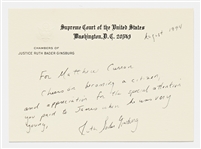 Supreme Court of the United States
Washington, D.C. 20543
August 1994
CHAMBERS OF
JUSTICE RUTH BADER GINSBURG
For Matthew
Cheers on becoming a citizen,
and appreciation for the special attention
you paid to James when he was very
young.
Ruth Bader Ginsburg